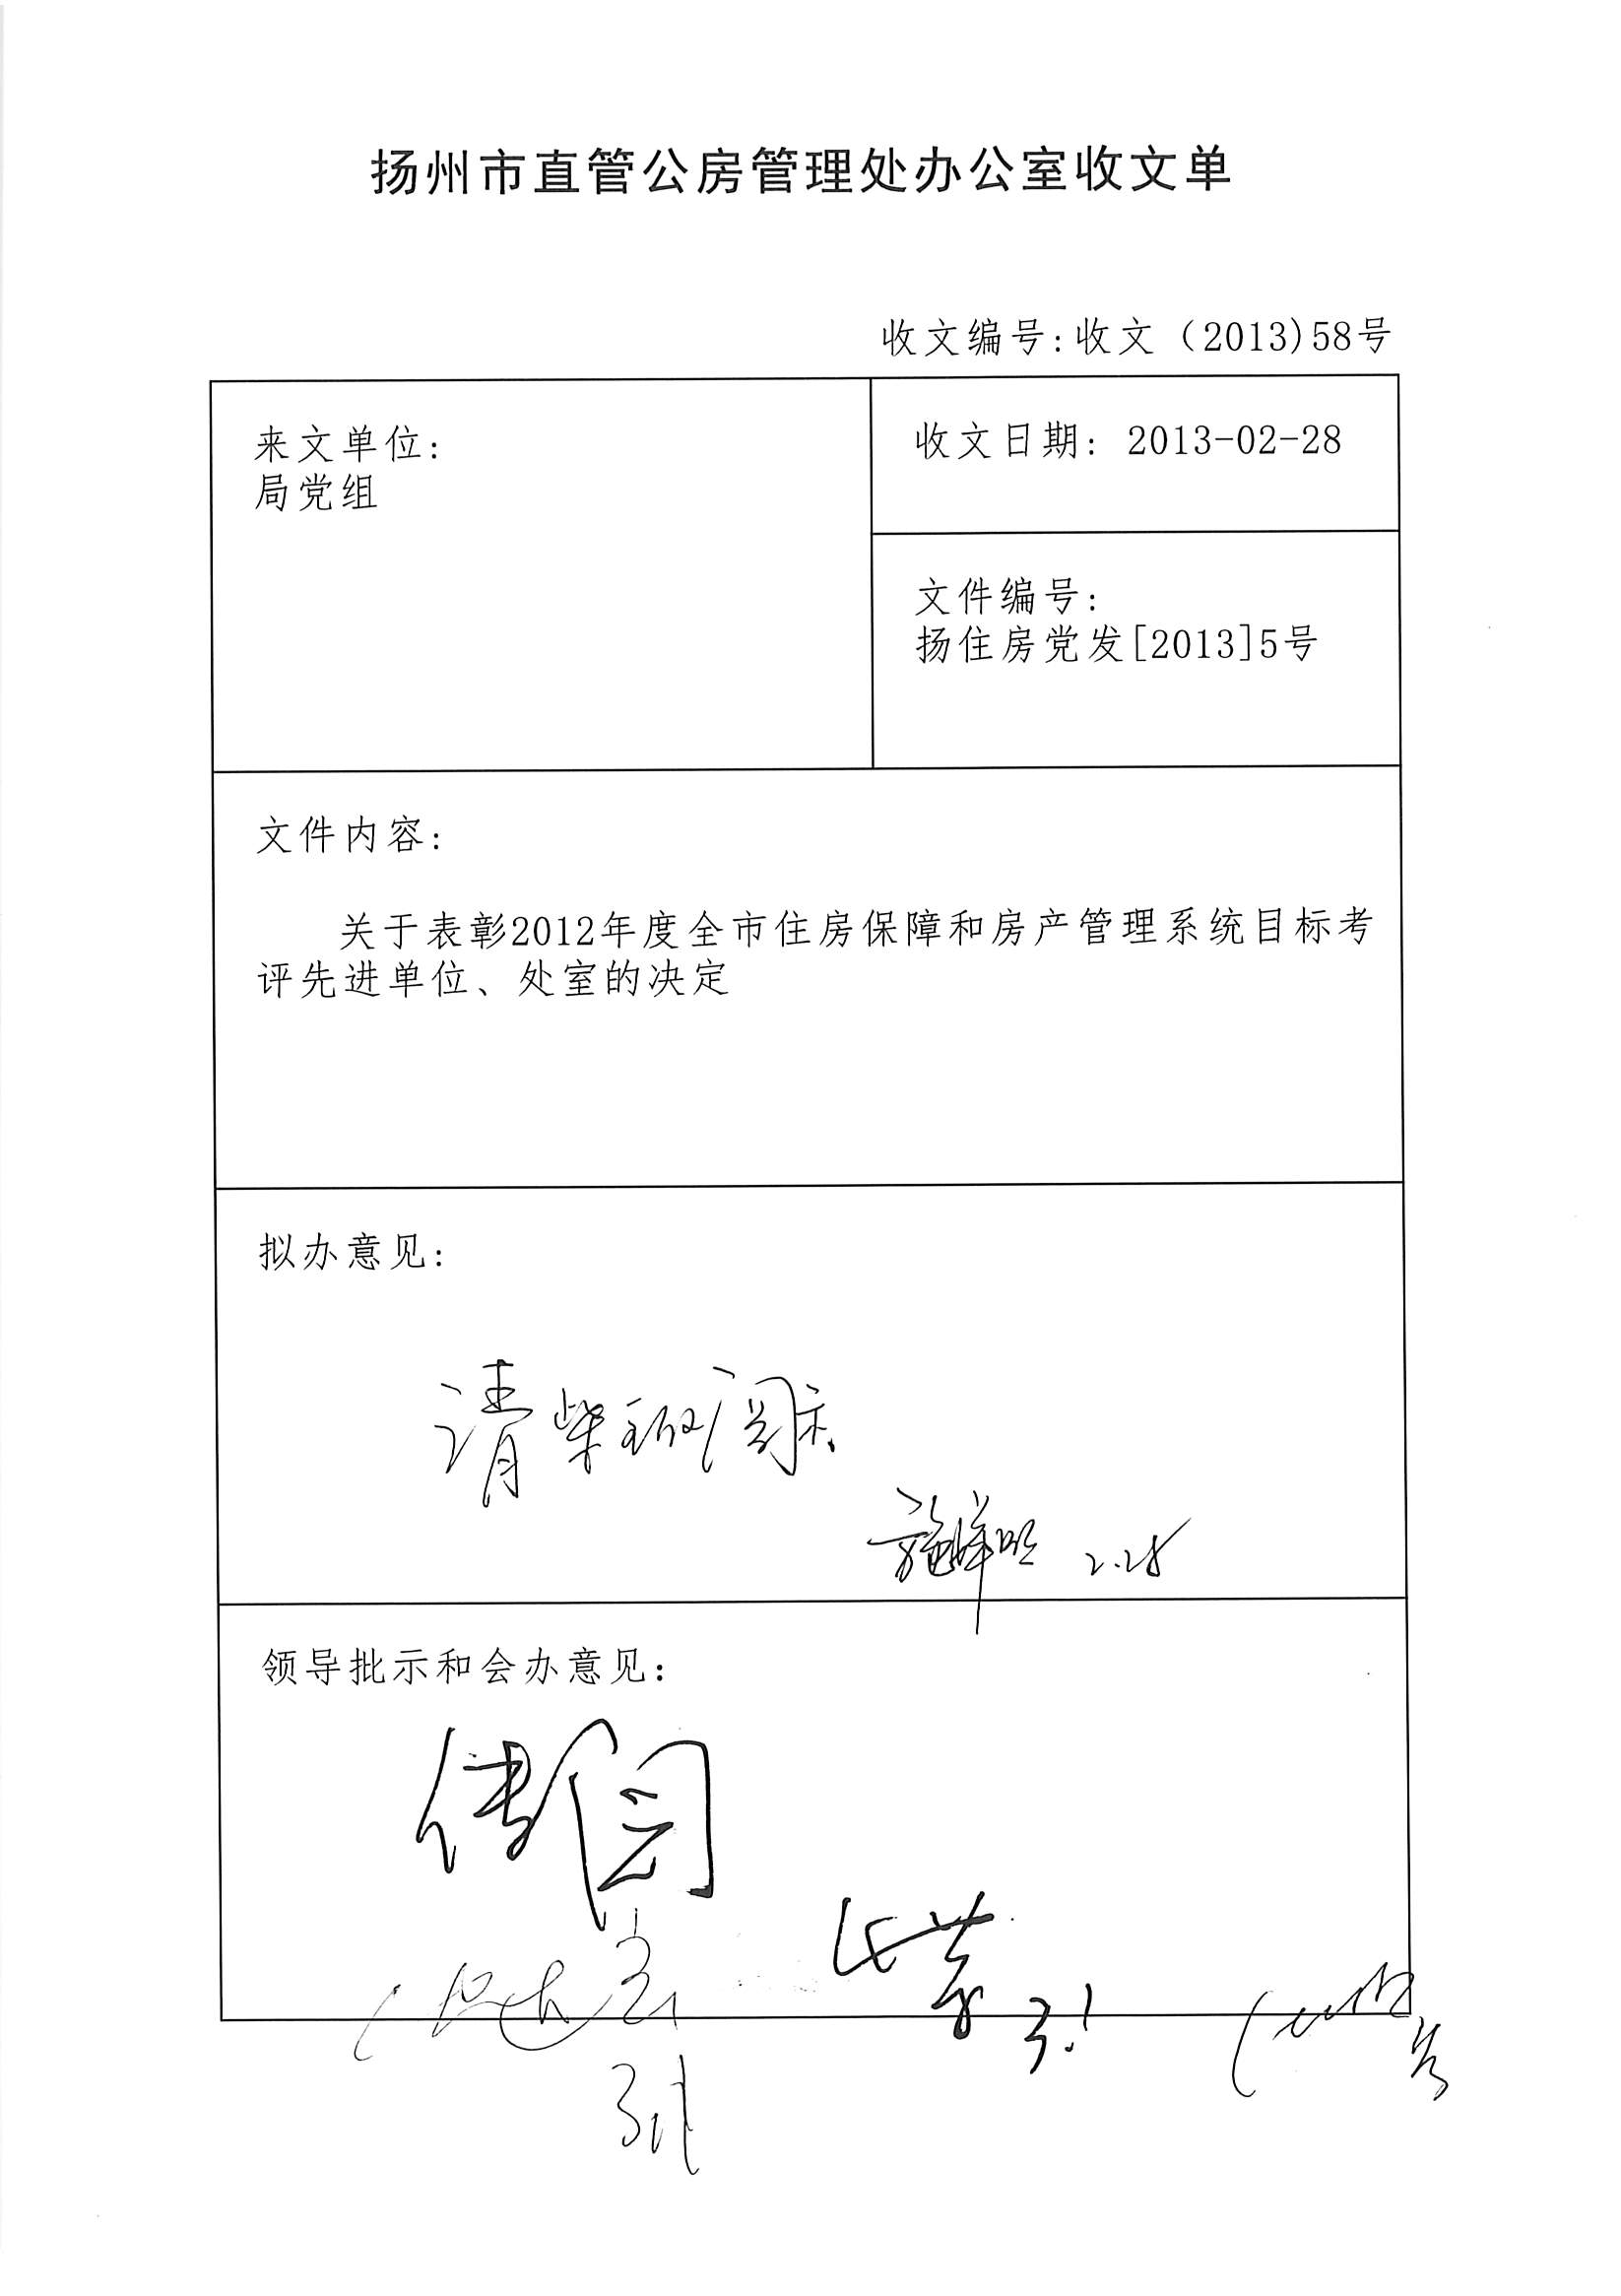 扬州市直管公房管理处办公室收文单
收文编号:收文（2013)58号
来文单位:
局党组
收文日期: 2013-02-28
文件编号:
扬住房党发[2013]5号
文件内容:
关于表彰2012年度全市住房保障和房产管理系统目标考
评先进单位、处室的决定
拟办意见:
请柴 阅示
2.28
领导批示和会办意见:
传阅
3.1